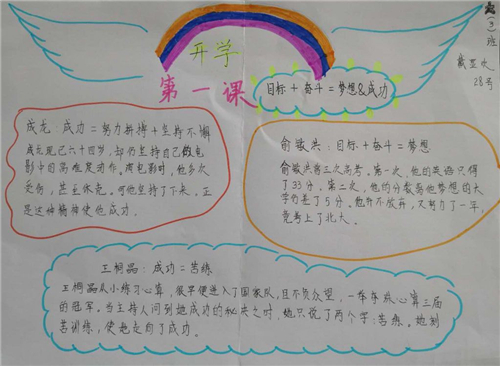 开学
第一课
(3)班
28号
目标+奋斗=梦想&成功
成龙:成功=努力拼搏+坚持不懈
成龙现已六十四岁,却仍坚持自己做电
影中的高难度动作。拍电影时,他多次
受伤,甚至休克。可他坚持了下来。正
是这种精神使他成功。
俞敏洪:目标+奋斗=梦想
俞敏洪曾三次高考。第一次,他的英语只得
了33分。第二次,他的分数离他梦想的大
学仍差了5分。他仍不放弃,又努力了一年,
竟考上了北大。
王桐晶:成功=苦练
王桐晶从小练习心算,很早便进入了国家队,且不负众望,一举夺
的冠军。当主持人问到她成功的秘诀之时,她只说了两个字:苦练。她刻
苦训练,使她走向了成功。